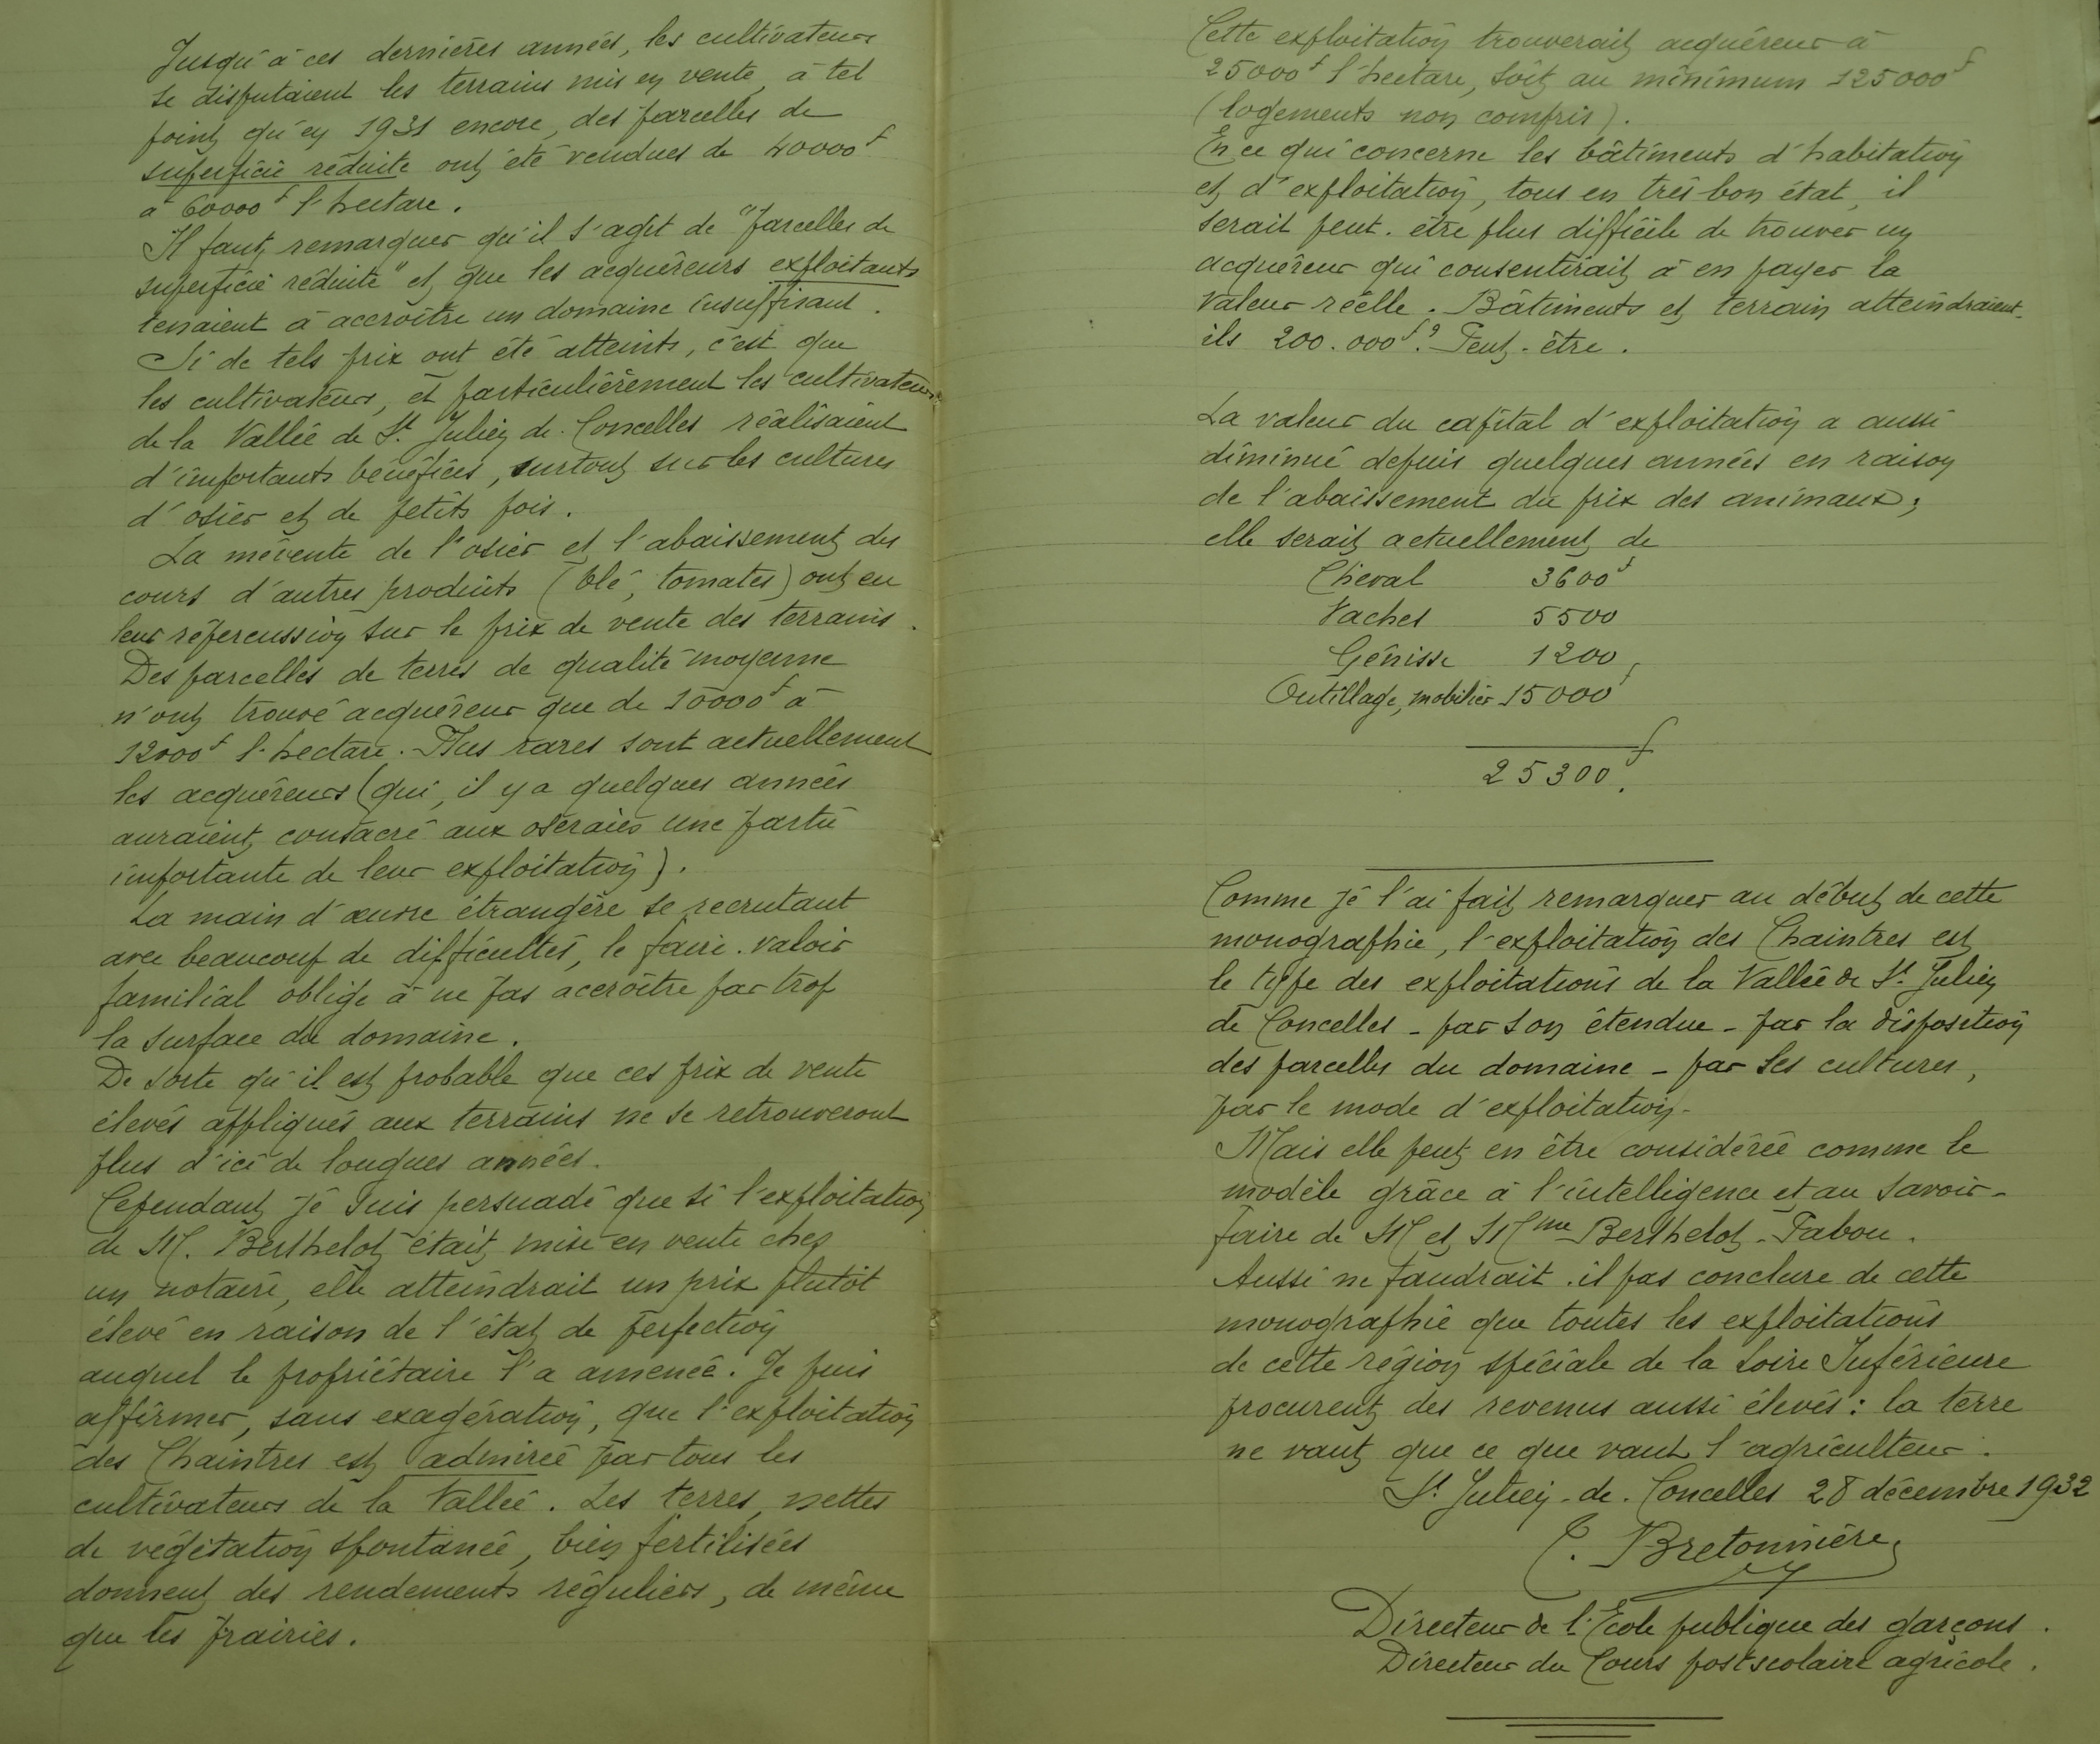 Jusqu'à ces dernières années, les cultivateurs
se disputaient les terrains mis en vente, à tel
point qu'en 1931 encore, des parcelles de
superficie réduite ont été vendues de 40000f
à 60000f l'hectare.
Il faut remarquer qu'il s'agit de "parcelles de
superficie réduite" et que les acquéreurs exploitants
tenaient à accroître un domaine insuffisant.
Si de tels prix ont été atteints, c'est que
les cultivateurs, et particulièrement les cultivateurs
de la Vallée de St Julien de Concelles réalisaient
d'importants bénéfices, surtout sur les cultures
d'osier et de petits pois.
La mévente de l'osier et l'abaissement des
cours d'autres produits (blé, tomates) ont eu
leur répercussion sur le prix de vente des terrains.
Des parcelles de terres de qualité moyenne
n'ont trouvé acquéreur que de 10000f à
12000f l'hectare. Plus rares sont actuellement
les acquéreurs (qui, il y a quelques années
auraient consacré aux oseraies une partie
importante de leur exploitation).
La main d'œuvre étrangère se recrutant
avec beaucoup de difficultés, le faire-valoir
familial oblige à ne pas accroître par trop
la surface du domaine.
De sorte qu'il est probable que ces prix de vente
élevés appliqués aux terrains ne se retrouveront
plus d'ici de longues années.
Cependant je suis persuadé que si l'exploitation
de M. Berthelot était mise en vente chez
un notaire, elle atteindrait un prix plutôt
élevé en raison de l'état de perfection
auquel le propriétaire l'a amenée. Je puis
affirmer, sans exagération, que l'exploitation
des Chaintres est admirée par tous les
cultivateurs de la Vallée. Les terres, nettes
de végétation spontanée, bien fertilisées
donnent des rendements réguliers, de même
que les prairies.
Cette exploitation trouverait acquéreur à
25000f l'hectare, soit au minimum 125000f
(logements non compris).
En ce qui concerne les bâtiments d'habitation
et d'exploitation, tous en très bon état, il
serait peut-être plus difficile de trouver un
acquéreur qui consentirait à en payer la
valeur réelle. Bâtiments et terrain atteindraient-
ils 200.000f? Peut-être.
La valeur du capital d'exploitation a aussi
diminué depuis quelques années en raison
de l'abaissement du prix des animaux;
elle serait actuellement de
Cheval 3600f
Vaches 5500
Génisse 1200
Outillage, mobilier 15000f
25300f.
Comme je l'ai fait remarquer au début de cette
monographie, l'exploitation des Chaintres est
le type des exploitations de la Vallée de St Julien
de Concelles - par son étendue - par la disposition
des parcelles du domaine - par ses cultures,
par le mode d'exploitation-
Mais elle peut en être considérée comme le
modèle grâce à l'intelligence et au savoir-
faire de M et Mme Berthelot-Pabou.
Aussi ne faudrait-il pas conclure de cette
monographie que toutes les exploitations
de cette région spéciale de la Loire Inférieure
procurent des revenus aussi élevés: la terre
ne vaut que ce que vaut l'agriculteur.
St Julien-de-Concelles 28 décembre 1932
C. Bretonnière
Directeur de l'École publique des garçons.
Directeur du Cours postscolaire agricole.